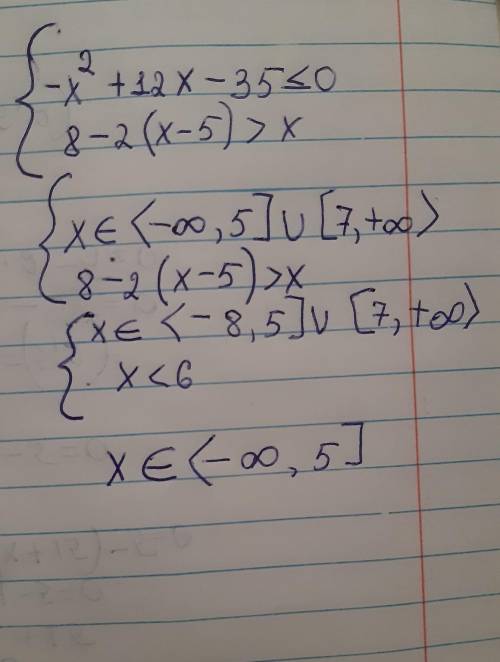 -x² + 12x - 35 ≤ 0
8 - 2(x-5) > x
x ∈ ⟨-∞, 5] ∪ [7, +∞⟩
8 - 2(x-5) > x
x ∈ ⟨-8, 5] ∪ [7, +∞⟩
x < 6
x ∈ ⟨-∞, 5]